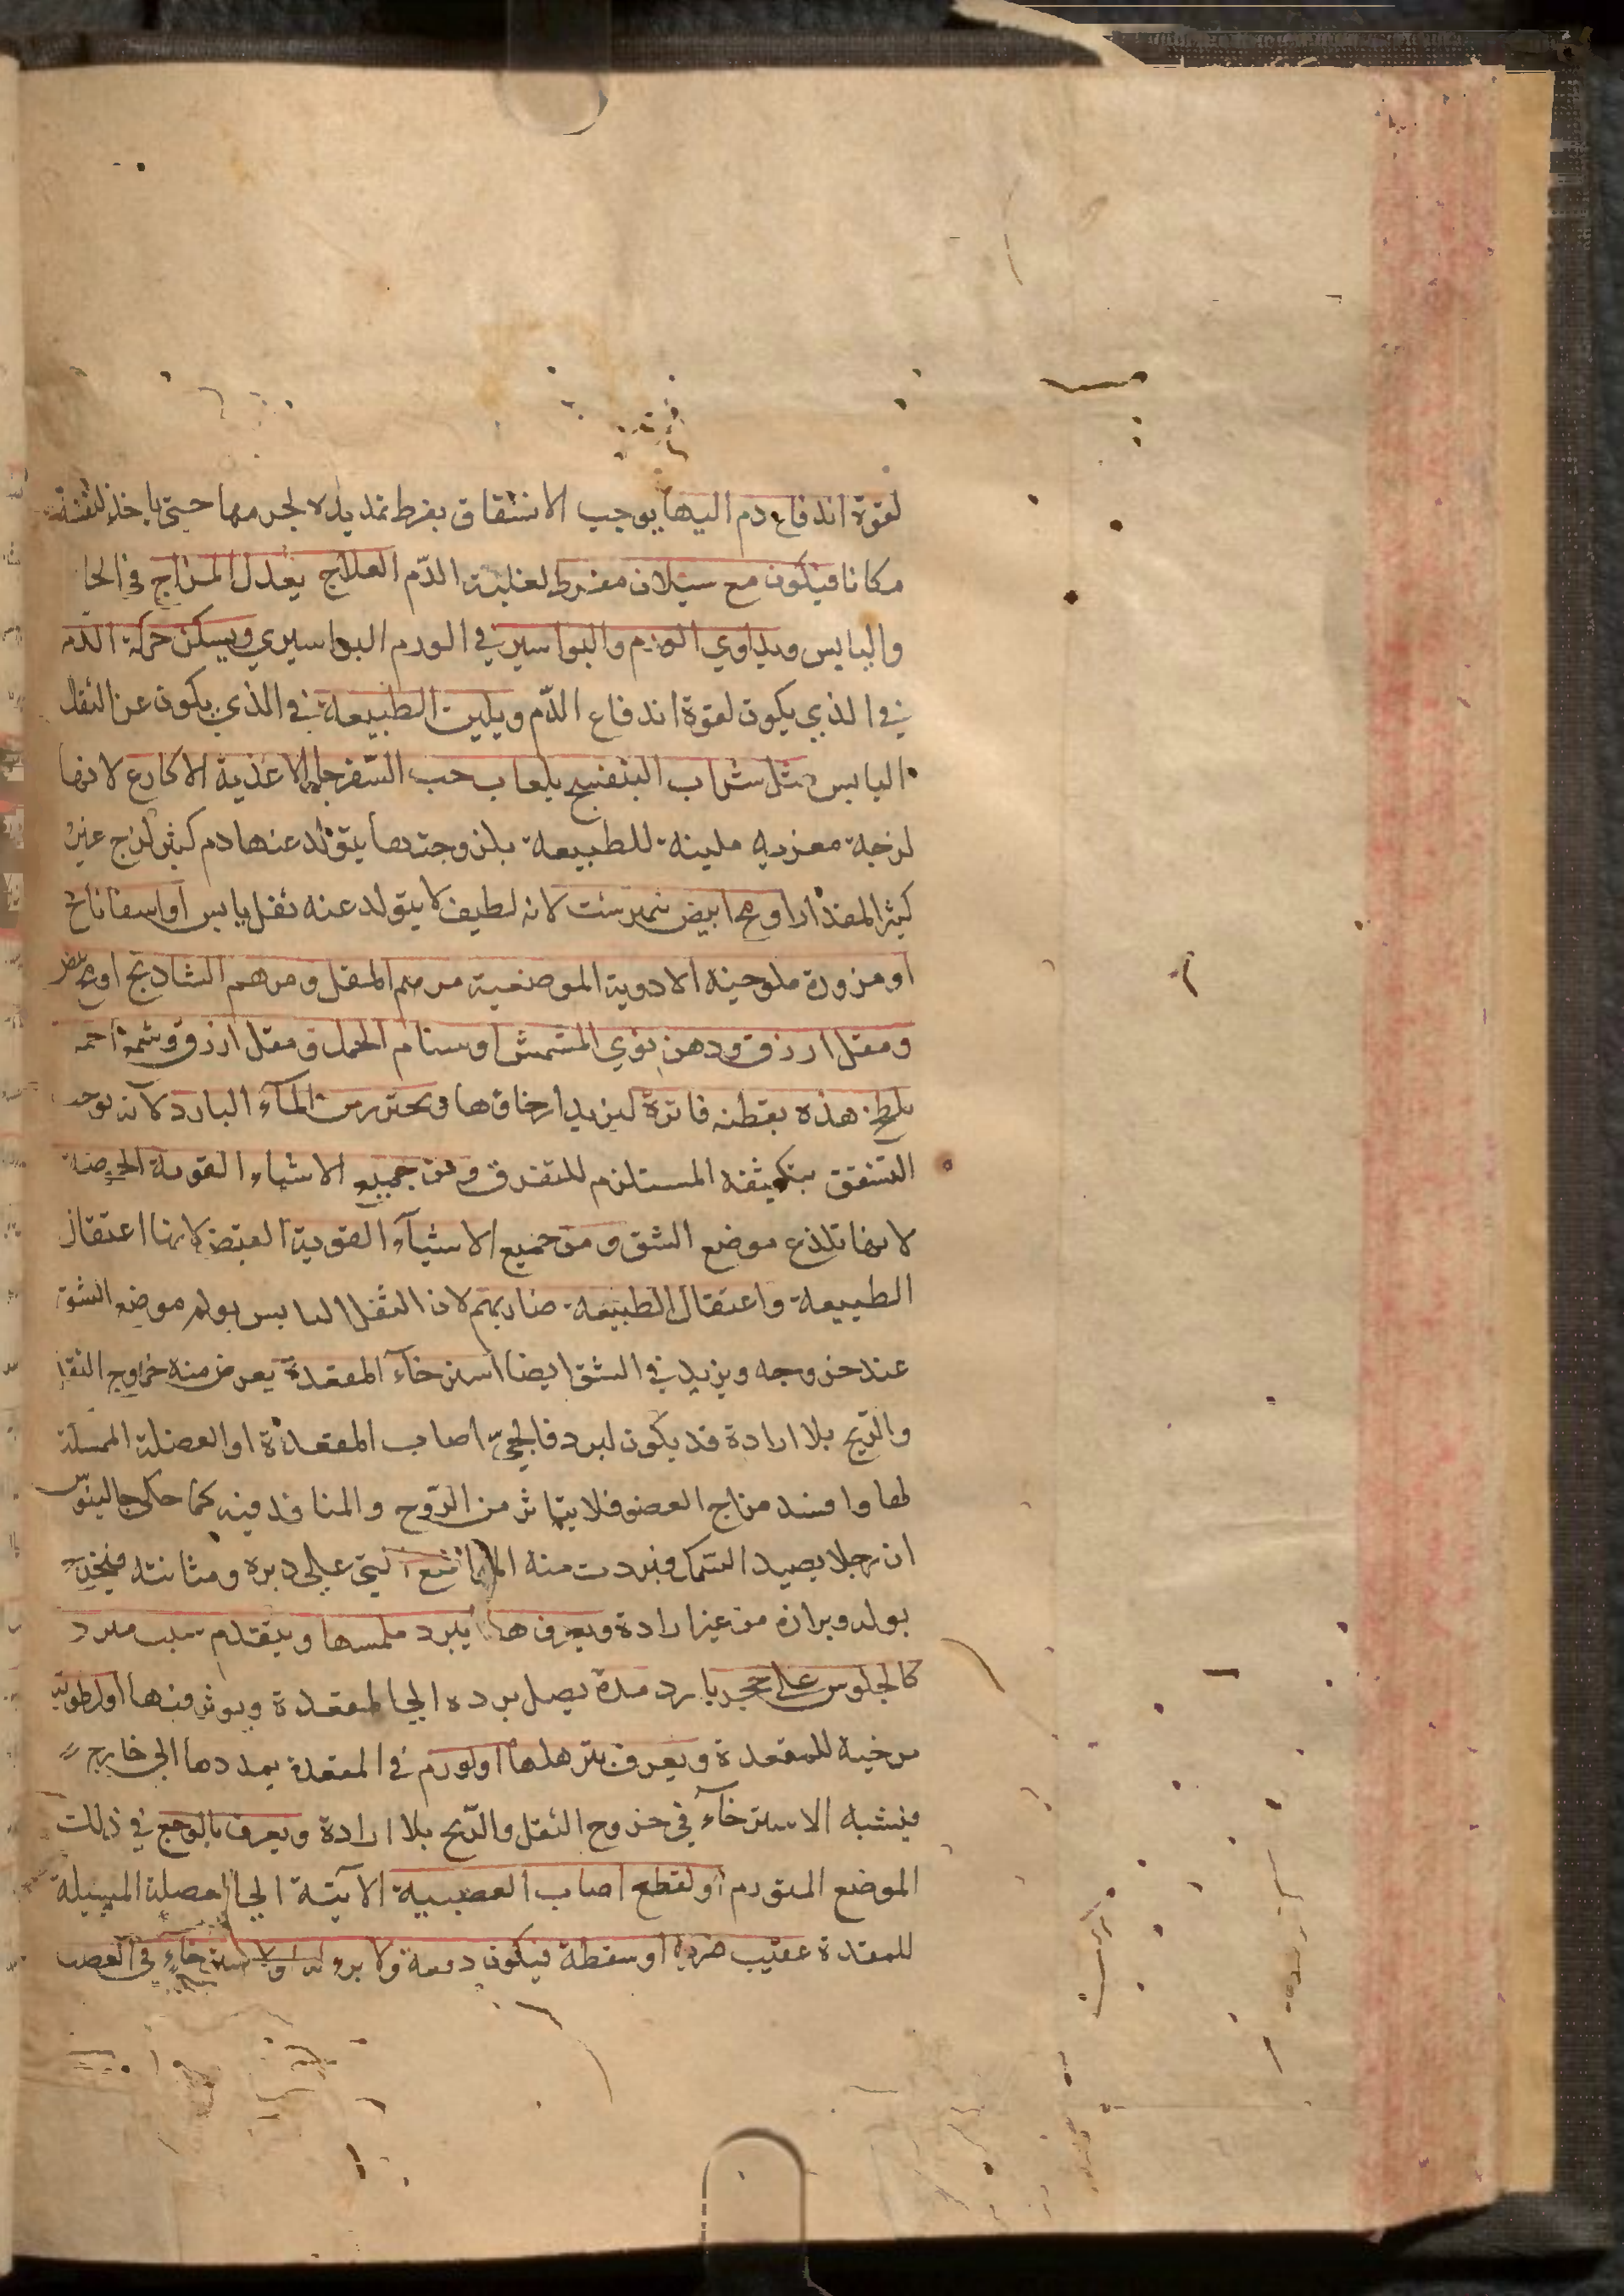 لقوة اندفاع دم اليها يوجب الانشقاق بفرط تمديده لجرمها حتى ياخذ لنفسه
مكانا فيكون مع سيلان مفرط لغلبة الدّم العلاج يعدل المزاج في الحار
واليابس ويداوي الورم والبواسير في الورم البواسيري ويسكن حركة الدم
في الذي يكون لقوة اندفاع الدّم ويلين الطبيعة في الذي يكون عن الثقل
اليابس مثل شراب البنفسج بلعاب حب السّفرجل الاغذية الاكارع لانها
لزجة مغرية ملينة للطبيعة بلزوجتها يتولد عنها دم كثير لزج غير
كثير المقدار او مح ابيض نمبرشت لانه لطيف لا يتولد عنه ثفل يابس او اسفاناخ
او مزورة ملوخيه الادوية الموضعية مرهم المقل ومرهم الشاديج او مح
ومقل ازرق ودهن نوي المشمش او سنام الجمل ومقل ازرق وشمع احمر
هذه بقطنه فاترة ليزيد ارخاؤها ويحترز من المآء البارد لانه يوجب
التشقق بتكثيفه المستلزم للتفرق ومن جميع الاشياء القوية الحموضة
لانها تلذع موضع الشق ومن جميع الاشيآء القوية القبض لانها اعتقال
الطبيعة واعتقال الطبيعة ضار بهم لان الثفل اليابس يولم موضع الشق
عند خروجه ويزيد في الشق ايضا استرخآء المقعدة يعرض منه خروج الثقل
والرّيح بلا ارادة قد يكون لبرد فالجيّ اصاب المقعدة او العضلة الممسكة
لها وافسد مزاج العضو فلا يتاثر من الرّوح والمنافذ فيه كما حكى جالينوس
ان رجلا يصيد السّمك فبردت منه المواضع التي على دبره ومثانته فيخرج
بوله وبرازه من غير ارادة ويعرف هذا ببرد ملمسها ويتقدم سبب مبرد
كالجلوس على حجر بارد مدة يصل برده الى المقعدة ويوثر فيها او لرطوبة
مرخية للمقعدة ويعرف بترهلها او لورم في المقعدة يمددها الى خارج
فيشبه الاسترخآء في خروج الثقل والرّيح بلا ارادة ويعرف بالوجع في ذلك
الموضع المتورم او لقطع اصاب العصبية الآتية الى العضلة المسبلة
للمقعدة عقيب ضربة او سقطة فيكون دفعة ولا برء له ولا استرخاء في العصب